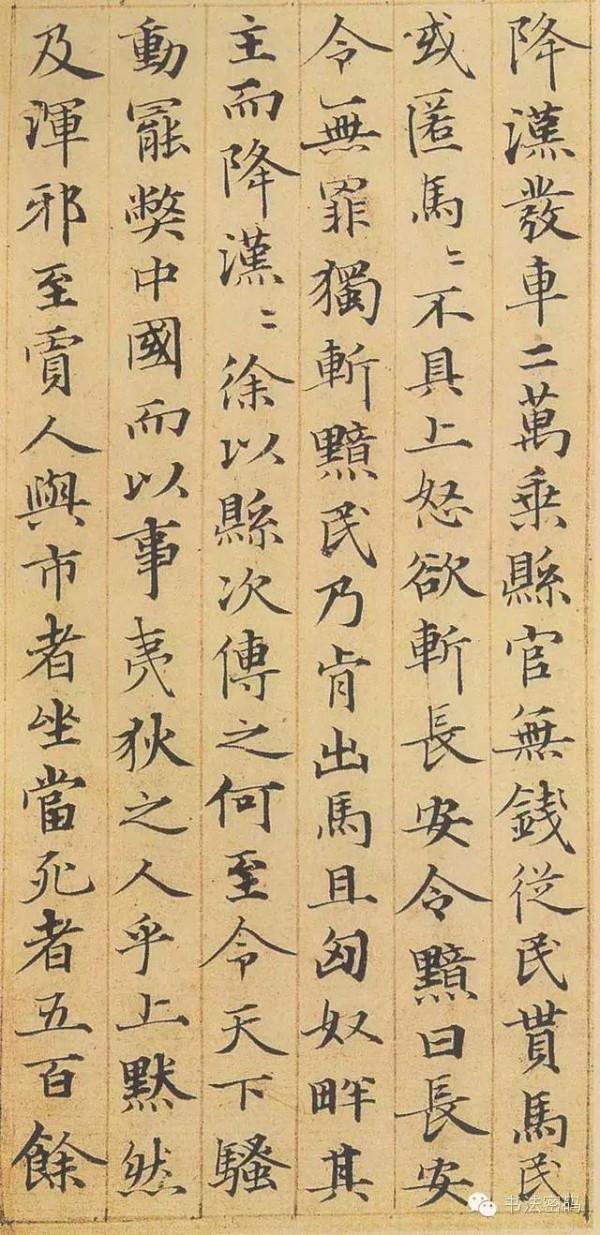 降漢發車二萬乘縣官無錢從民貰馬民
或匿馬〻不具上怒欲斬長安令黯曰長安
令無罪獨斬黯民乃肯出馬且匈奴畔其
主而降漢〻徐以縣次傳之何至令天下騷
動罷弊中國而以事夷狄之人乎上默然
及渾邪至賈人與市者坐當死者五百餘
书法密码